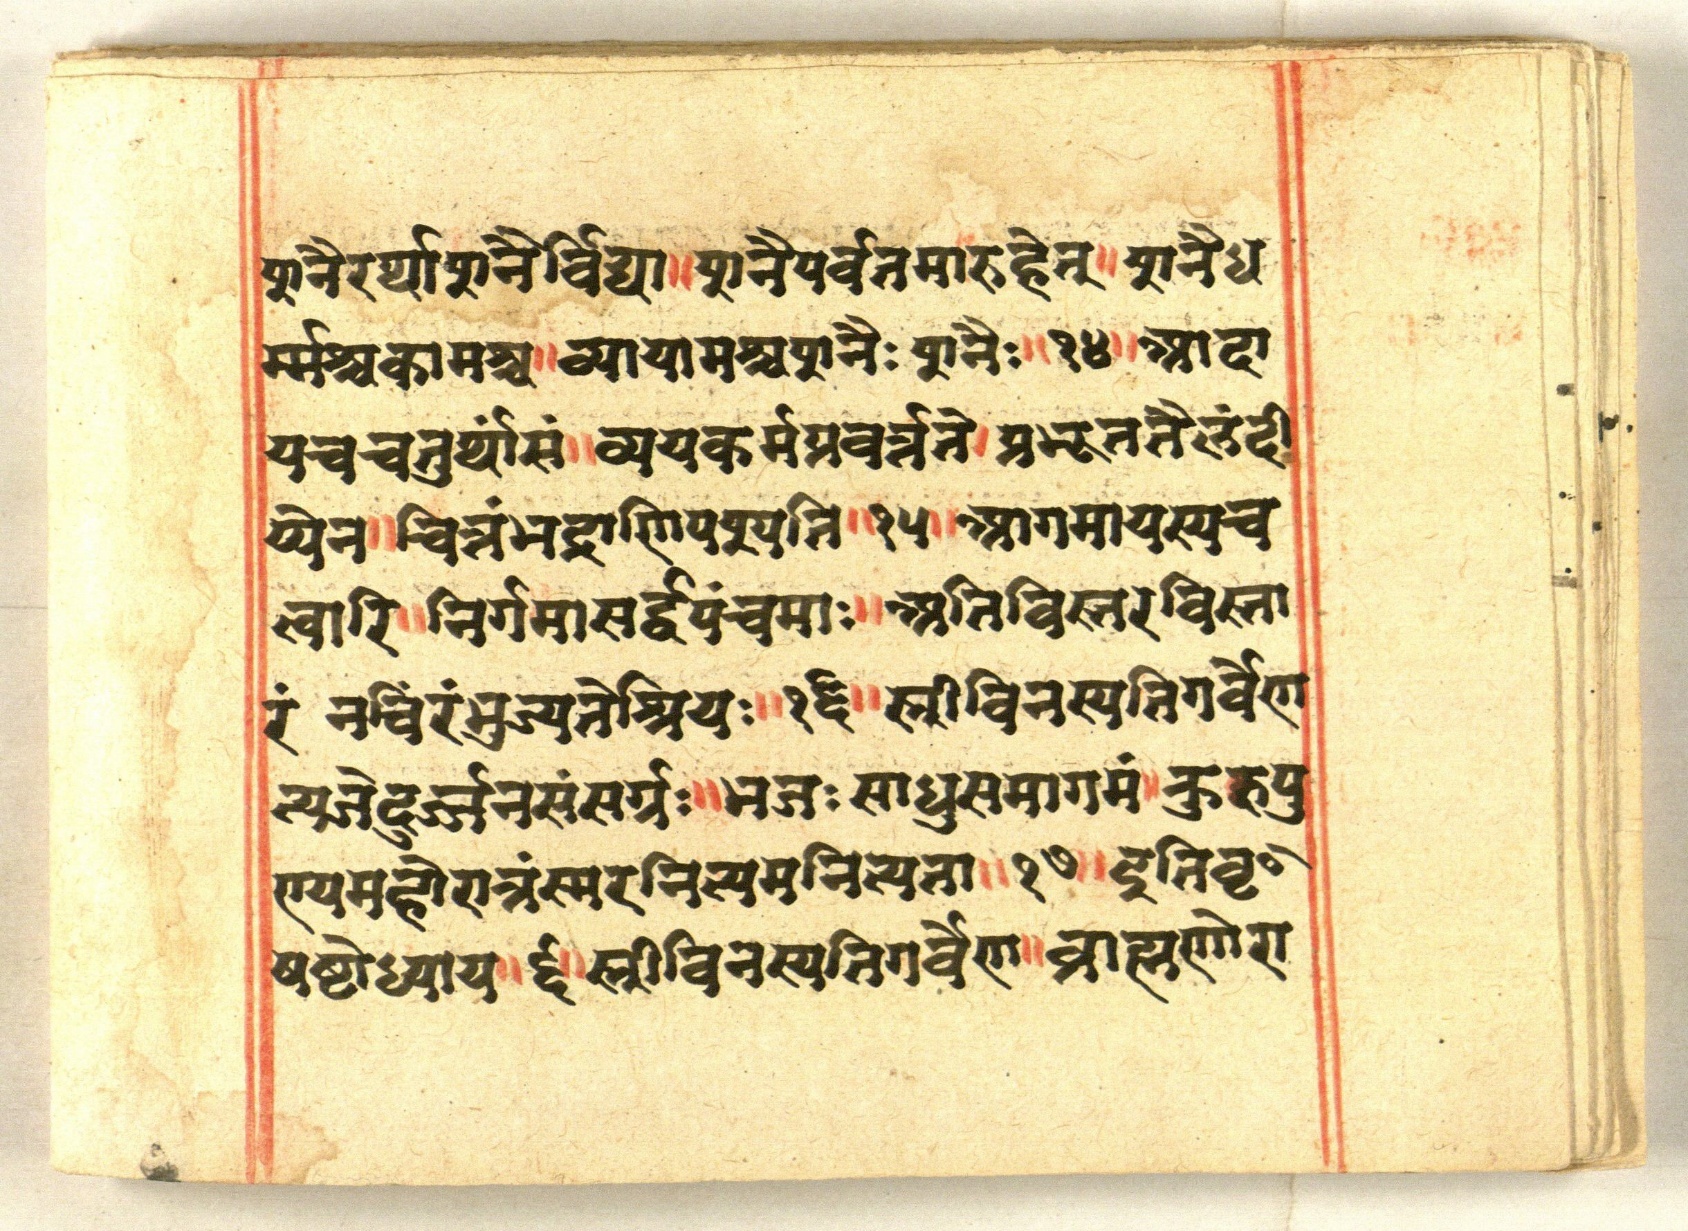 शनैरर्था शनैर्विद्या ॥ शनैपर्वतमारुहेत् ॥ शनैध
र्म्मश्चकामश्च ॥ व्यायामश्चशनैः शनैः ॥ १४ ॥ आदा
यचचतुर्थांसं ॥ व्ययकर्मप्रवर्त्तते । प्रभूततैलंदी
य्येन ॥ चित्रंभद्राणिपश्यति ॥ १५ ॥ आगमायस्यच
त्वारि ॥ निर्गमासर्द्धपंचमाः ॥ अतिविस्तरविस्ता
रं नचिंरंभुज्यतेश्रियः ॥ १६ ॥ स्त्रीविनस्यतिगर्वेण
त्यजेदुर्ज्जनसंसर्ग्गः ॥ भजः साधुसमागमं ॥ कुरुपु
ण्यमहोरात्रंस्मरनित्यमनित्यता ॥ १७ ॥ इतिवृ॰
षष्टोध्याय ॥ ६ ॥ स्त्रीविनस्यतिगर्वेण ॥ ब्राह्मणोरा